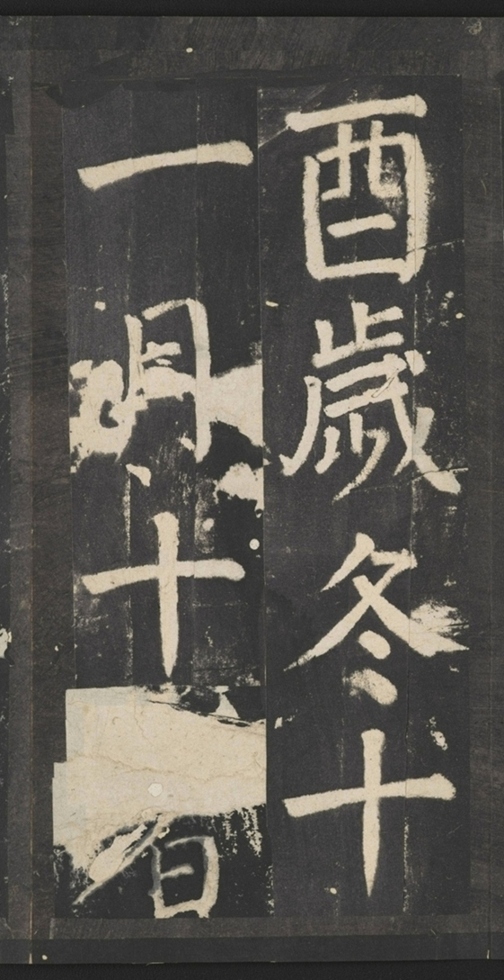 酉歲冬十
一月十